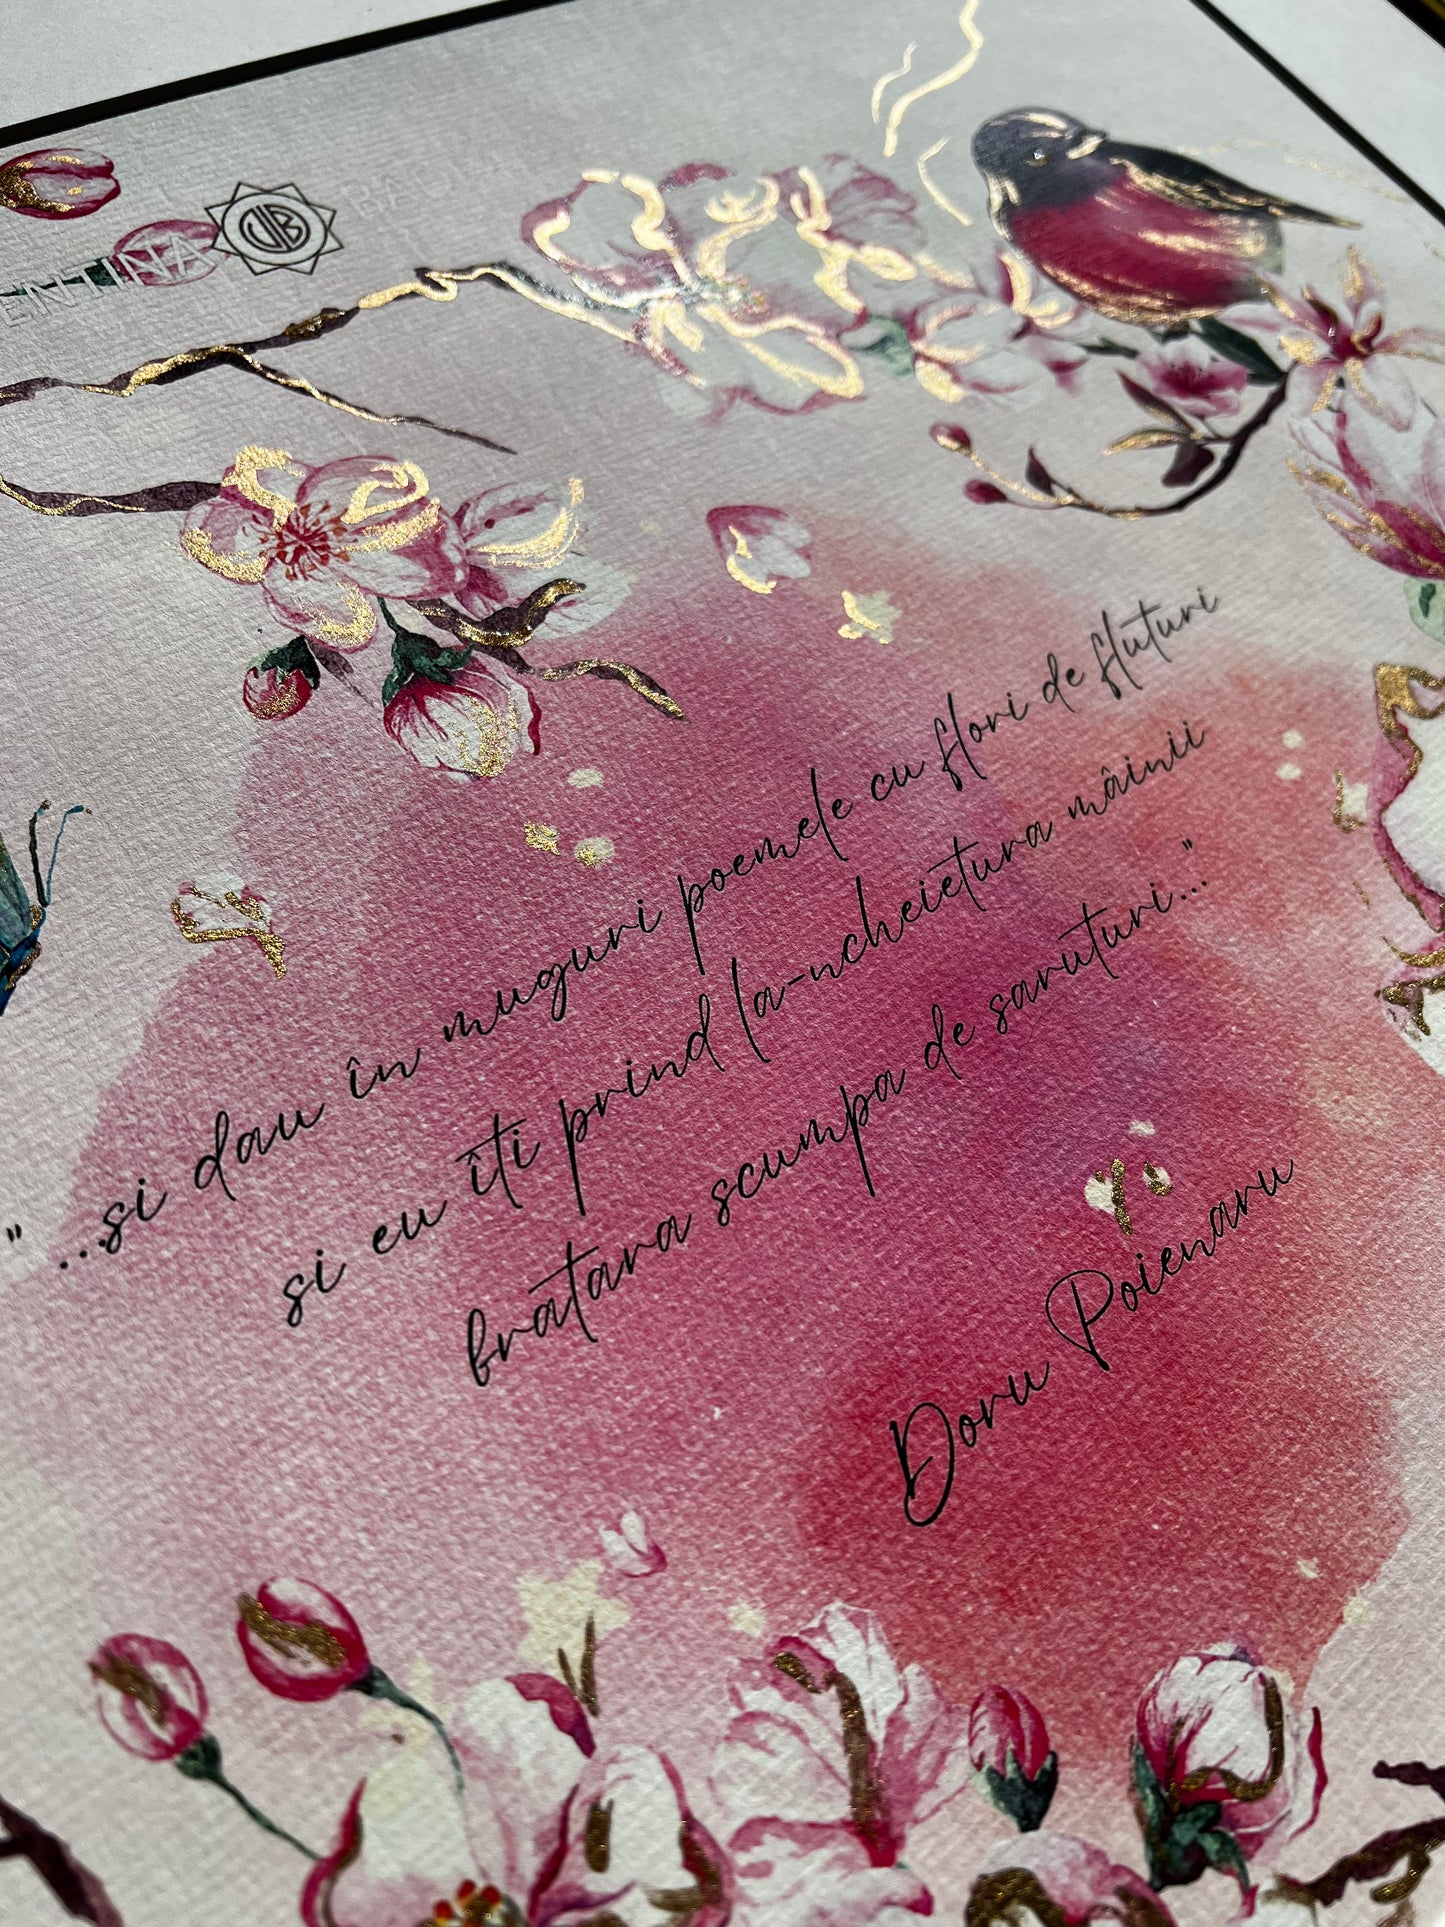 ENTINA VB BA
"...si dau în muguri poemele cu flori de fluturi
si eu îti prind la-ncheietura mâinii
bratara scumpa de saruturi..."
Doru Poienaru